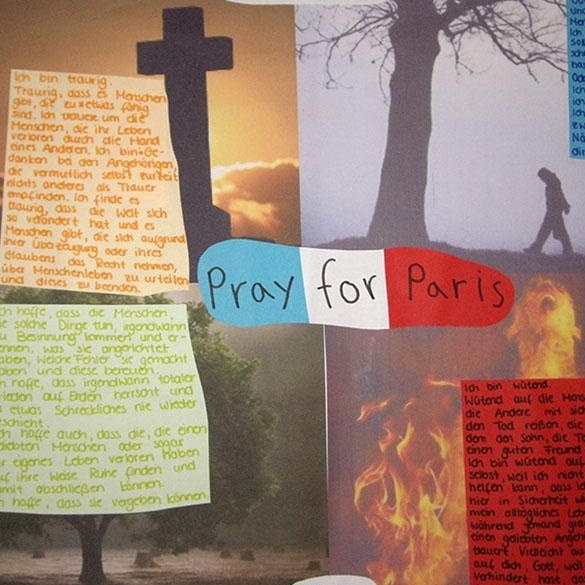 Ich bin traurig.
Traurig, dass es Menschen
gibt, die zu etwas fähig
sind. Ich trauere um die
Menschen, die ihr Leben
verloren durch die Hand
eines Anderen. Ich bin Ge-
danken bei den Angehörigen,
die vermutlich selbst zurzeit
nichts anderes als Trauer
empfinden. Ich finde es
traurig, dass die Welt sich
so verändert hat und es
Menschen gibt, die sich aufgrund
ihrer Überzeugung oder ihres
Glaubens das Recht nehmen,
über Menschenleben zu urteilen
und dieses zu beenden.
Pray for Paris
ch hoffe, dass die Menschen,
ie solche Dinge tun, irgendwann
u Besinnung kommen und er-
ennen, was sie angerichtet
aben, welche Fehler sie gemacht
aben und diese bereuen.
h hoffe, dass irgendwann totaler
rieden auf Erden herrscht und
etwas Schreckliches nie wieder
eschieht.
ch hoffe auch, dass die, die einen
eliebten Menschen oder sogar
r eigenes Leben verloren haben
uf ihre Weise Ruhe finden und
amit abschließen können.
h hoffe, dass sie vergeben können.
Ich bin wütend.
Wütend auf die Mens
die Andere mit sich
den Tod reißen, die
dem den Sohn, die To
einen guten Freund
Ich bin wütend auf
selbst, weil ich nicht
helfen kann, dass ic
hier in Sicherheit w
mein alltägliches Leb
während jemand gra
einen geliebten Angeh
trauert. Vielleicht au
auf dich, Gott, was
verhindert hast, da